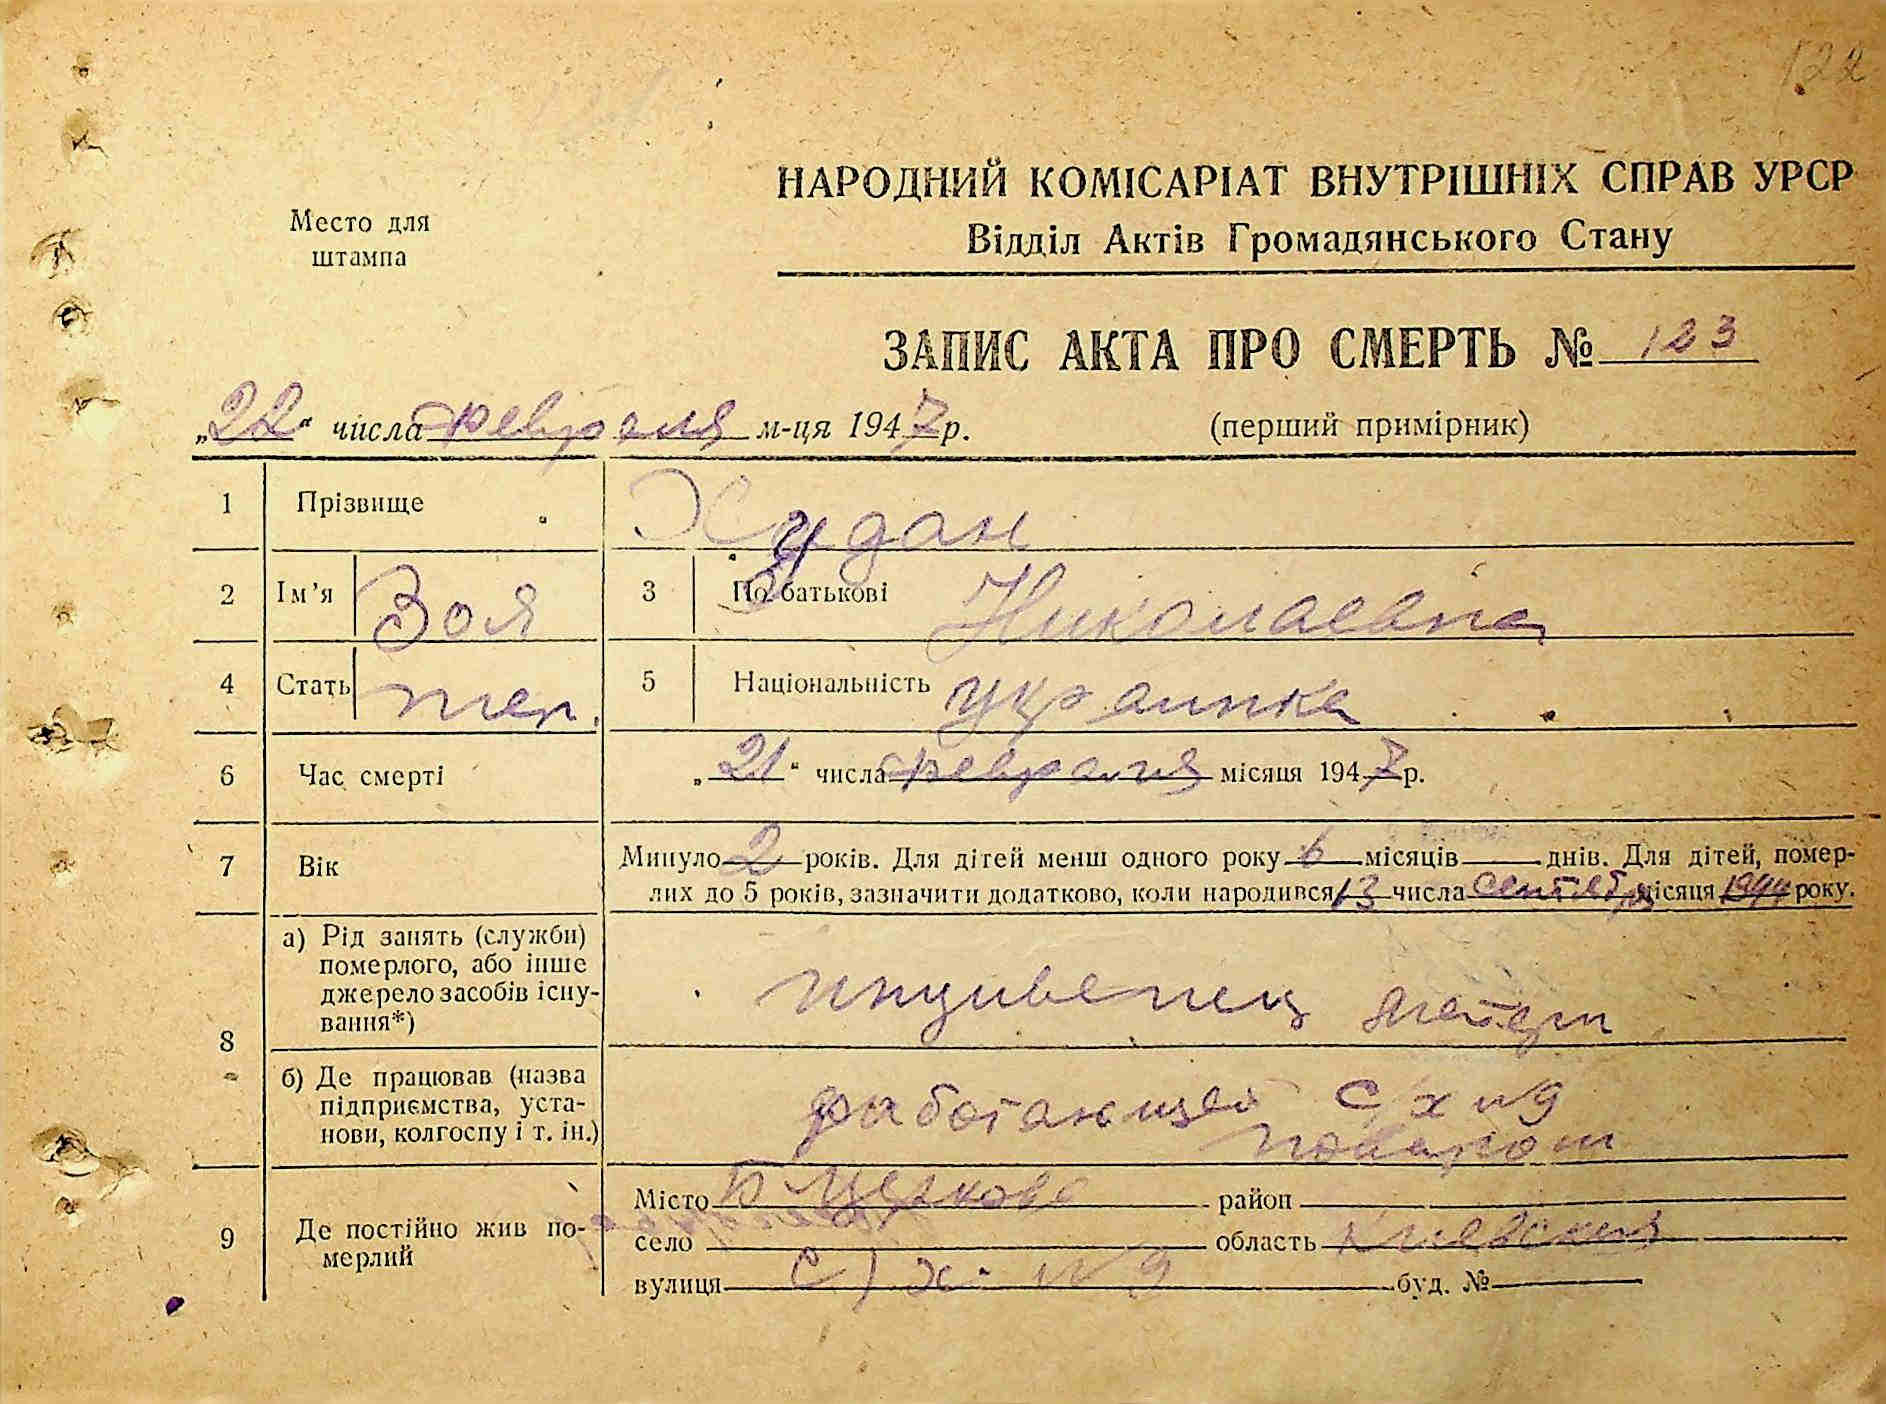 122
Место для
штампа
НАРОДНИЙ КОМІСАРІАТ ВНУТРІШНІХ СПРАВ УРСР
Відділ Актів Громадянського Стану
ЗАПИС АКТА ПРО СМЕРТЬ № 123
„22“ числа февраля м-ця 1947 р. (перший примірник)
1 Прізвище Худан
2 Ім’я Зоя 3 По батькові Николаевна
4 Стать жен. 5 Національність украинка
6 Час смерті „21“ числа февраля місяця 1947 р.
7 Вік Минуло 2 років. Для дітей менш одного року 6 місяців днів. Для дітей, помер-
лих до 5 років, зазначити додатково, коли народився 13 числа сентября місяця 1944 року.
8 а) Рід занять (служби)
померлого, або інше
джерело засобів існу-
вання*)
иждивенец матери
б) Де працював (назва
підприємства, уста-
нови, колгоспу і т. ін.)
работающей с/х №9
поваром
9 Де постійно жив по-
мерлий
Місто Б Церковь район
село область Киевская
вулиця с/х. №9 буд. №